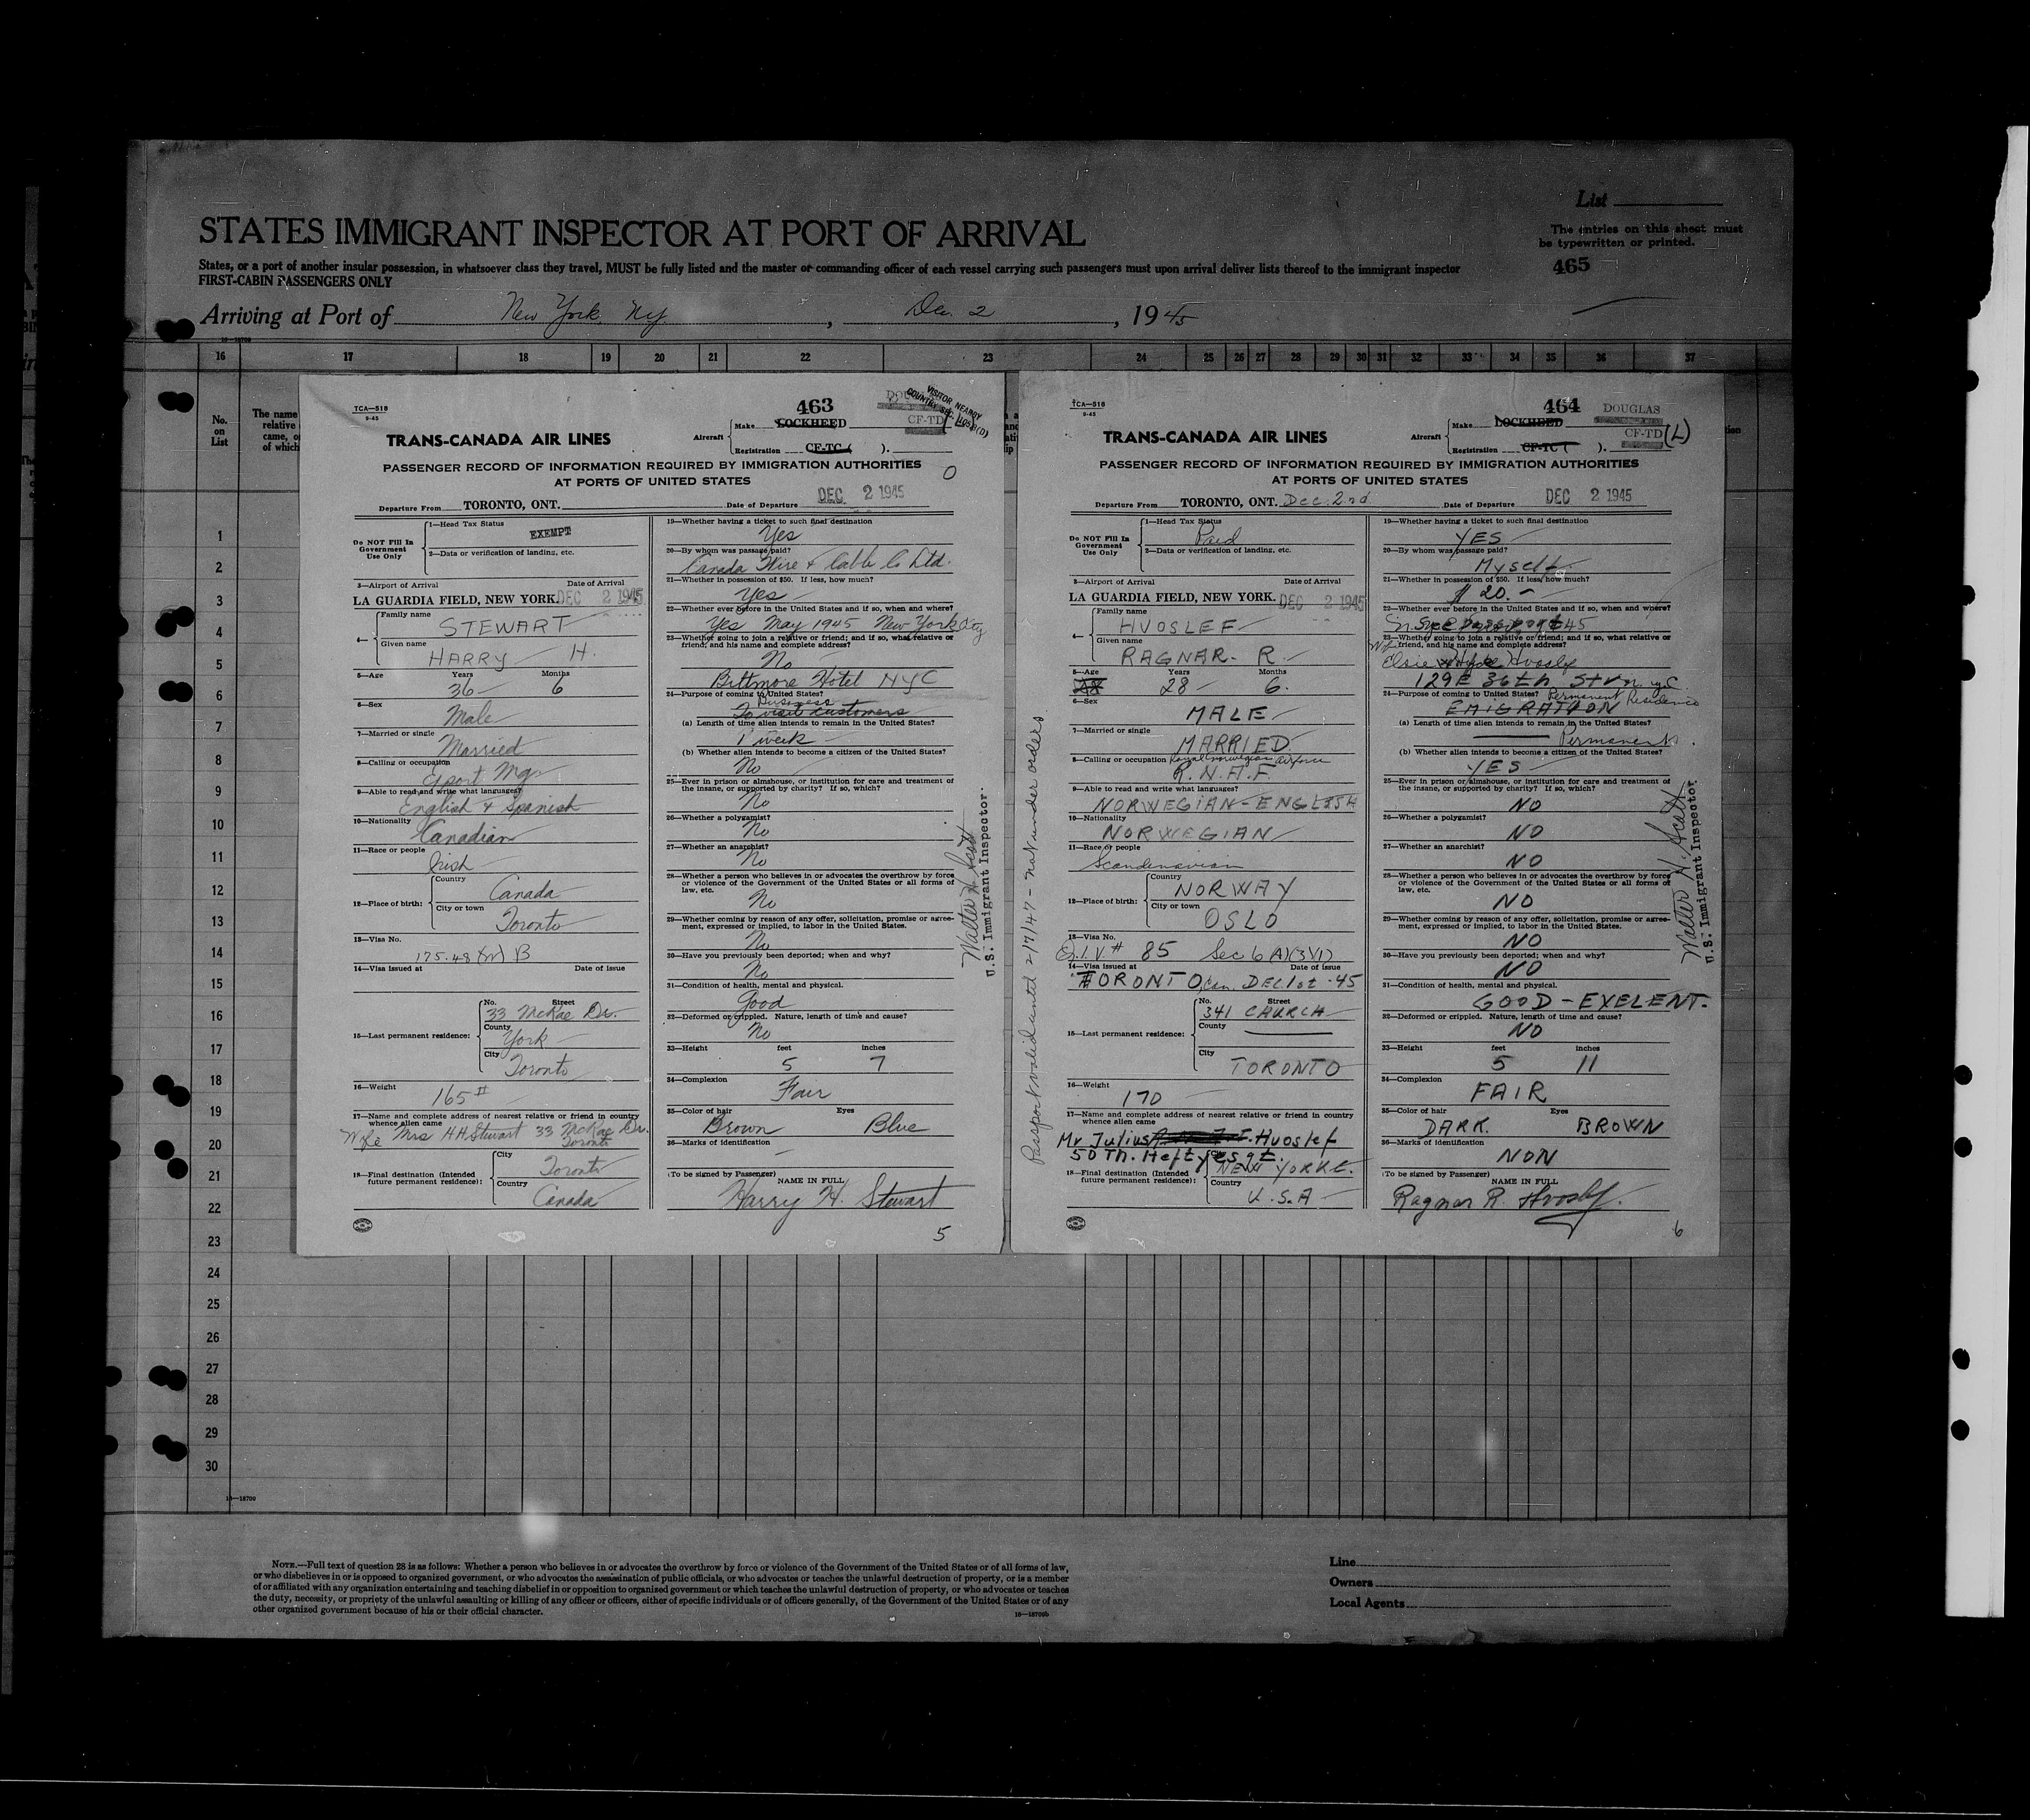 List
STATES IMMIGRANT INSPECTOR AT PORT OF ARRIVAL
The entries on this sheet must
be typewritten or printed.
States, or a port of another insular possession, in whatsoever class they travel, MUST be fully listed and the master or commanding officer of each vessel carrying such passengers must upon arrival deliver lists thereof to the immigrant inspector
465
FIRST-CABIN PASSENGERS ONLY
Arriving at Port of New York, Ny. , Dec. 2 , 1945
16 17 18 19 20 21 22 23 24 25 26 27 28 29 30 31 32 33 34 35 36 37
No.
on
List
The name
relative
came, o
of which
1
2
3
4
5
6
7
8
9
10
11
12
13
14
15
16
17
18
19
20
21
22
23
24
25
26
27
28
29
30
TCA—518
9-45
463
VISITOR NEARBY
TRANS-CANADA AIR LINES
Aircraft
Make LOCKHEED
Registration CF-TC ( ).
CF-TD
PASSENGER RECORD OF INFORMATION REQUIRED BY IMMIGRATION AUTHORITIES
AT PORTS OF UNITED STATES
O
Departure From TORONTO, ONT. Date of Departure DEC 2 1945
Do NOT Fill In
Government
Use Only
1—Head Tax Status
EXEMPT
2—Data or verification of landing, etc.
3—Airport of Arrival Date of Arrival
LA GUARDIA FIELD, NEW YORK. DEC 2 1945
4— Family name
STEWART
Given name
HARRY H.
5—Age Years Months
36 6
6—Sex
Male
7—Married or single
Married
8—Calling or occupation
Export Mgr
9—Able to read and write what languages?
English & Spanish
10—Nationality
Canadian
11—Race or people
Irish
12—Place of birth:
Country
Canada
City or town
Toronto
13—Visa No.
175.48 (w) B
14—Visa issued at Date of issue
15—Last permanent residence:
No. Street
33 McRae Dr.
County
York
City
Toronto
16—Weight
165
17—Name and complete address of nearest relative or friend in country
whence alien came
Wife Mrs H H Stewart 33 McRae Dr.
Toronto
18—Final destination (Intended
future permanent residence):
City
Toronto
Country
Canada
19—Whether having a ticket to such final destination
Yes
20—By whom was passage paid?
Canada Wire & Cable Co Ltd.
21—Whether in possession of $50. If less, how much?
Yes
22—Whether ever before in the United States and if so, when and where?
Yes May 1945 New York City
23—Whether going to join a relative or friend; and if so, what relative or
friend; and his name and complete address?
No
Biltmore Hotel NYC
24—Purpose of coming to United States?
Business
To visit customers
(a) Length of time alien intends to remain in the United States?
1 week
(b) Whether alien intends to become a citizen of the United States?
No
25—Ever in prison or almshouse, or institution for care and treatment of
the insane, or supported by charity? If so, which?
No
26—Whether a polygamist?
No
27—Whether an anarchist?
No
28—Whether a person who believes in or advocates the overthrow by force
or violence of the Government of the United States or all forms of
law, etc.
No
29—Whether coming by reason of any offer, solicitation, promise or agree-
ment, expressed or implied, to labor in the United States.
No
30—Have you previously been deported; when and why?
No
31—Condition of health, mental and physical.
Good
32—Deformed or crippled. Nature, length of time and cause?
No
33—Height feet inches
5 7
34—Complexion
Fair
35—Color of hair Eyes
Brown Blue
36—Marks of identification
—
(To be signed by Passenger) NAME IN FULL
Harry H. Stewart
5
Walter H. Scott
U.S. Immigrant Inspector.
TCA—518
9-45
464
DOUGLAS
TRANS-CANADA AIR LINES
Aircraft
Make LOCKHEED
Registration CF-TC ( ).
CF-TD (L)
PASSENGER RECORD OF INFORMATION REQUIRED BY IMMIGRATION AUTHORITIES
AT PORTS OF UNITED STATES
Departure From TORONTO, ONT. Dec. 2nd Date of Departure DEC 2 1945
Do NOT Fill In
Government
Use Only
1—Head Tax Status
Paid
2—Data or verification of landing, etc.
3—Airport of Arrival Date of Arrival
LA GUARDIA FIELD, NEW YORK. DEC 2 1945
4— Family name
HVOSLEF
Given name
RAGNAR. R.
5—Age Years Months
28 6.
6—Sex
MALE
7—Married or single
MARRIED.
8—Calling or occupation Royal Norwegian Airforce
R.N.A.F.
9—Able to read and write what languages?
NORWEGIAN-ENGLISH
10—Nationality
NORWEGIAN
11—Race or people
Scandinavian
12—Place of birth:
Country
NORWAY
City or town
OSLO
13—Visa No.
Q.I.V # 85 Sec 6 A)(3)(1)
14—Visa issued at Date of issue
TORONTO, Can. DEC 1st -45
15—Last permanent residence:
No. Street
341 CHURCH
County
City
TORONTO
16—Weight
170
17—Name and complete address of nearest relative or friend in country
whence alien came
Mr Julius Hvoslef
50 Th. Heftyesgt.
18—Final destination (Intended
future permanent residence):
City
NEW YORKE.
Country
U.S.A
19—Whether having a ticket to such final destination
YES
20—By whom was passage paid?
Myself.
21—Whether in possession of $50. If less, how much?
$ 20.-
22—Whether ever before in the United States and if so, when and where?
45
23—Whether going to join a relative or friend; and if so, what relative or
friend, and his name and complete address?
Elsie Hvoslef
129 E 36th St N.Y.C
24—Purpose of coming to United States? Permanent Residence
EMIGRATION
(a) Length of time alien intends to remain in the United States?
Permanent.
(b) Whether alien intends to become a citizen of the United States?
YES
25—Ever in prison or almshouse, or institution for care and treatment of
the insane, or supported by charity? If so, which?
NO
26—Whether a polygamist?
NO
27—Whether an anarchist?
NO
28—Whether a person who believes in or advocates the overthrow by force
or violence of the Government of the United States or all forms of
law, etc.
NO
29—Whether coming by reason of any offer, solicitation, promise or agree-
ment, expressed or implied, to labor in the United States.
NO
30—Have you previously been deported; when and why?
NO
31—Condition of health, mental and physical.
GOOD-EXELENT.
32—Deformed or crippled. Nature, length of time and cause?
NO
33—Height feet inches
5 11
34—Complexion
FAIR
35—Color of hair Eyes
DARK. BROWN
36—Marks of identification
NON
(To be signed by Passenger) NAME IN FULL
Ragnar R. Hvoslef.
6
Passport valid until 2/7/47 - not under orders.
Walter H. Scott
U.S. Immigrant Inspector
16—18709
NOTE.—Full text of question 28 is as follows: Whether a person who believes in or advocates the overthrow by force or violence of the Government of the United States or of all forms of law,
or who disbelieves in or is opposed to organized government, or who advocates the assassination of public officials, or who advocates or teaches the unlawful destruction of property, or is a member
of or affiliated with any organization entertaining and teaching disbelief in or opposition to organized government or which teaches the unlawful destruction of property, or who advocates or teaches
the duty, necessity, or propriety of the unlawful assaulting or killing of any officer or officers, either of specific individuals or of officers generally, of the Government of the United States or of any
other organized government because of his or their official character.
16—18709b
Line
Owners
Local Agents